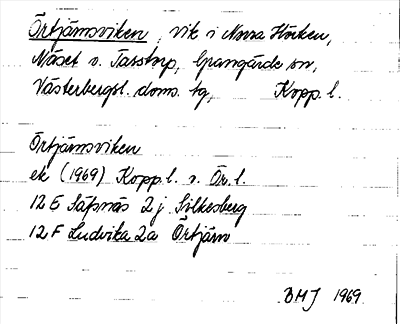 Örtjärnsviken, vik i Norra Hörken,
Näset v. Tasstorp, Grangärde sn,
Västerbergsl. doms. tg, Kopp. l.
Örtjärnsviken
ek (1969) Kopp. l. o. Ör. l.
12 E Säfsnäs 2 j Silkesberg
12 F Ludvika 2a Örtjärn
BMJ 1969